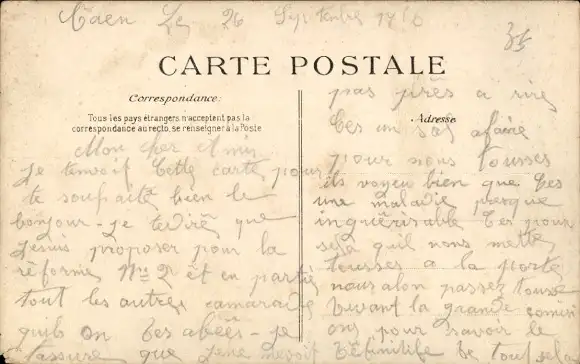 Caen Le 26 Septembre 1916
35
CARTE POSTALE
Correspondance:
Tous les pays étrangers n'acceptent pas la
correspondance au recto, se renseigner à la Poste
Mon cher Amis
Je tenvoit Cette carte pour
te souhaité bien le
bonjour - je te dirè que
Jesuis proposer pour la
réforme Nro 2 èt en partie
tout les autres camarade
quils on - je
tassure que
Adresse
pas près a rire
Ces un sal afaire
pour nous tousses
ils voyeu bien que Ces
une maladie presque
inguérisable Ces pour
selà quil nous mette
tousses a la porte
nous alon passez tousse
Devant la grande comisi
ons pour savoir le
Définitife de tout sela